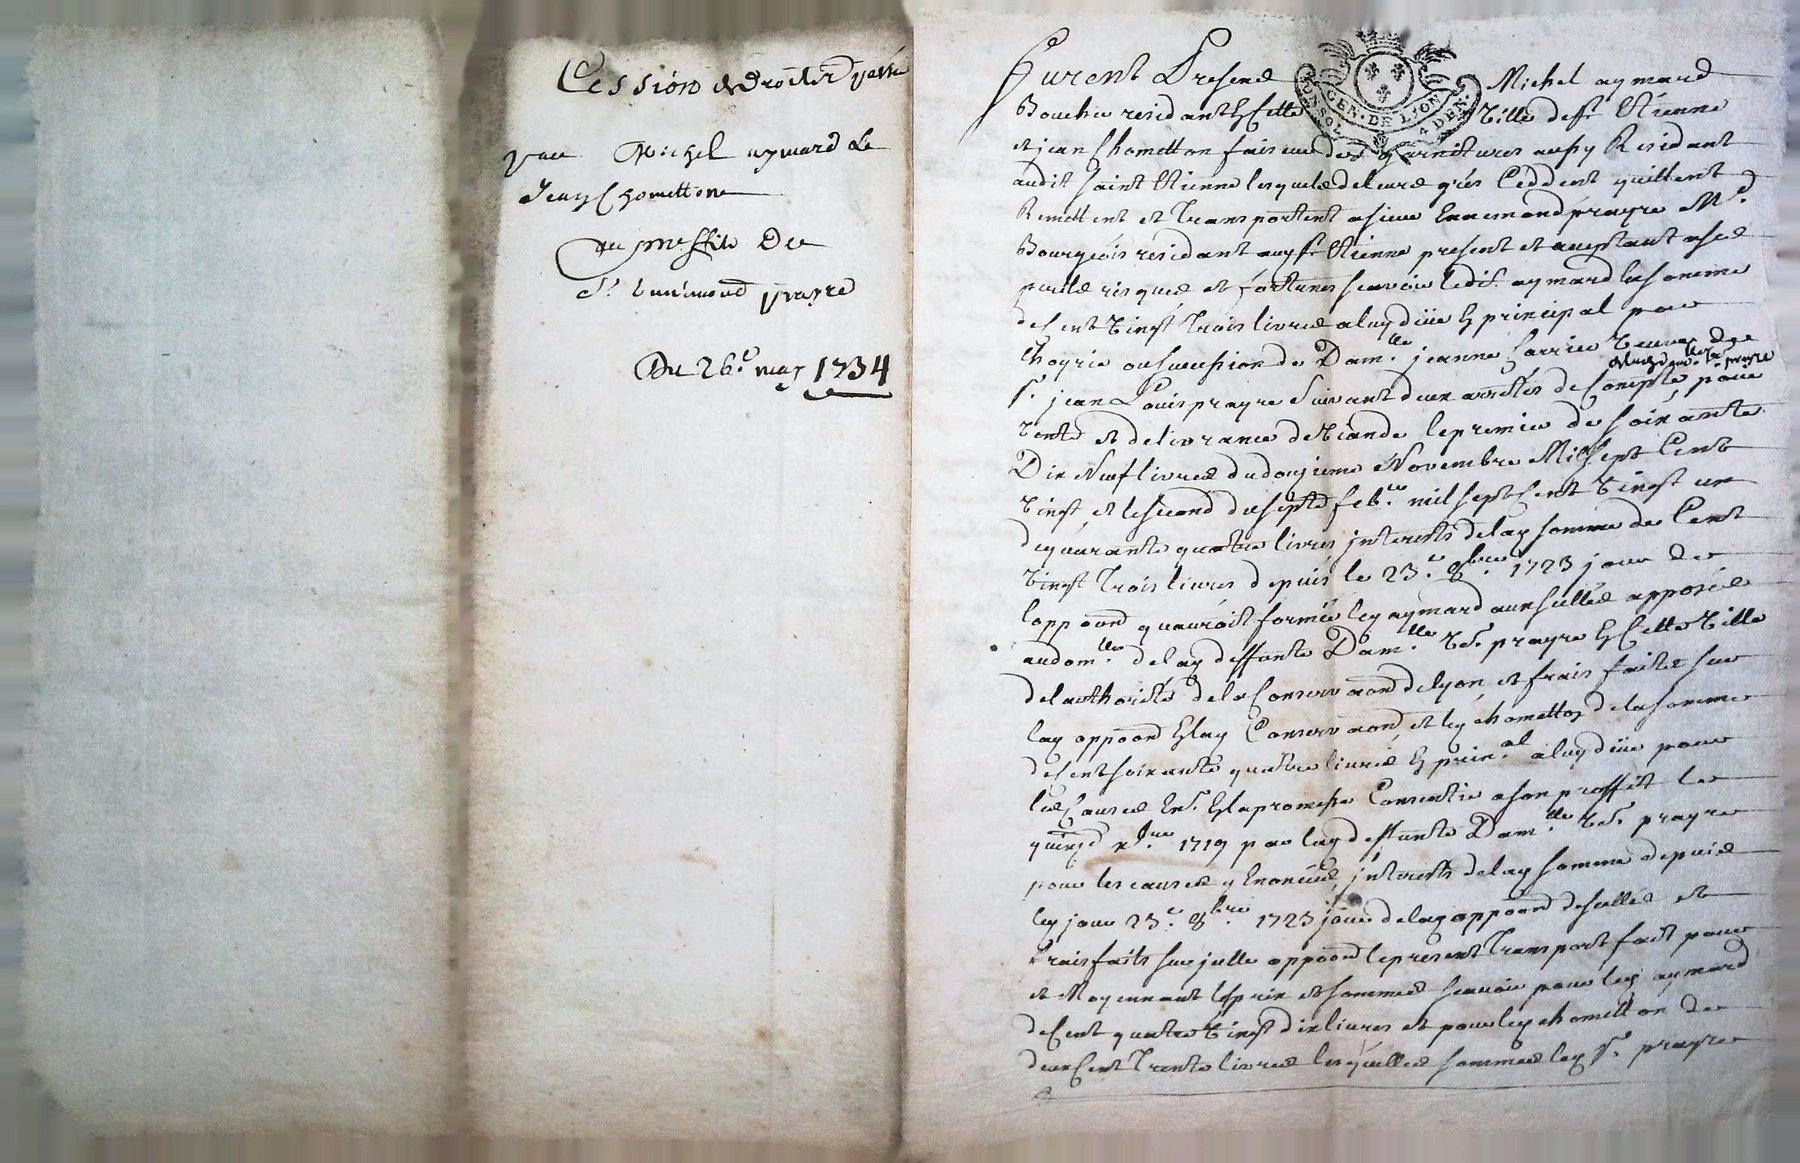 Cession de Droit
par Michel aymard &
Jean Chometton
au proffit De
Sr. Ennemond prayre
Du 26e. may 1734
GEN. DE LYON
UN SOL 4 DEN.
Furent Presens Michel aymard
Boucher residant en Cette Ville de st. Etienne
et jean Chometton faiseur des garnitures aussy Residant
audit saint Etienne lesquels de leurs grés Ceddent quittent
Remettent et transportent a sieur Ennemond prayre Md.
Bourgeois residant audt. st. Etienne present et acceptant a ses
perils risques et fortunes scavoir ledit. aymard la somme
de Cent Vingt trois livres a luy düe en principal par
lhoyrie ou succession de Damlle. jeanne Carrier Veuve de
sr. jean Louis prayre suivant deux arrêtés de Compte pour
Vente et delivrance de Viande le premier de soixante
Dix Neuf livres du douzieme Novembre Mil sept Cent
Vingt et le second du sept feb. mil sept Cent Vingt un
de quarante quatre livres, interests de lad. somme de Cent
Vingt trois livres depuis le 23e. 8bre. 1723 jour de
loppoõn quauroit formée led. aymard aux scellés apposés
au domlle. de lad. deffunte Damlle. Ve. prayre en Cette Ville
de lauthorité de la Conservaõn de lyon et frais faits sur
lad. oppoõn en lad. Conservaõn, et led. chometton de la somme
de Cent soixante quatre livres en prinal. a luy düe pour
les Causes En. en la promesse Consentie a son proffit le
1719 par lad. deffunte Damlle. Ve. prayre
pour les causes y Enoncées, interests de lad. somme depuis
led. jour 23e. 8bre. 1723 jour de lad. oppoõn de scellés et
frais faits sur jcelle oppoõn le present transport fait pour
et Moyennant le prix et sommes scavoir pour led. aymard
de Cent quatre Vingt dix livres et pour led. chometton de
deux Cent trente livres lesquelles sommes led. sr. prayre